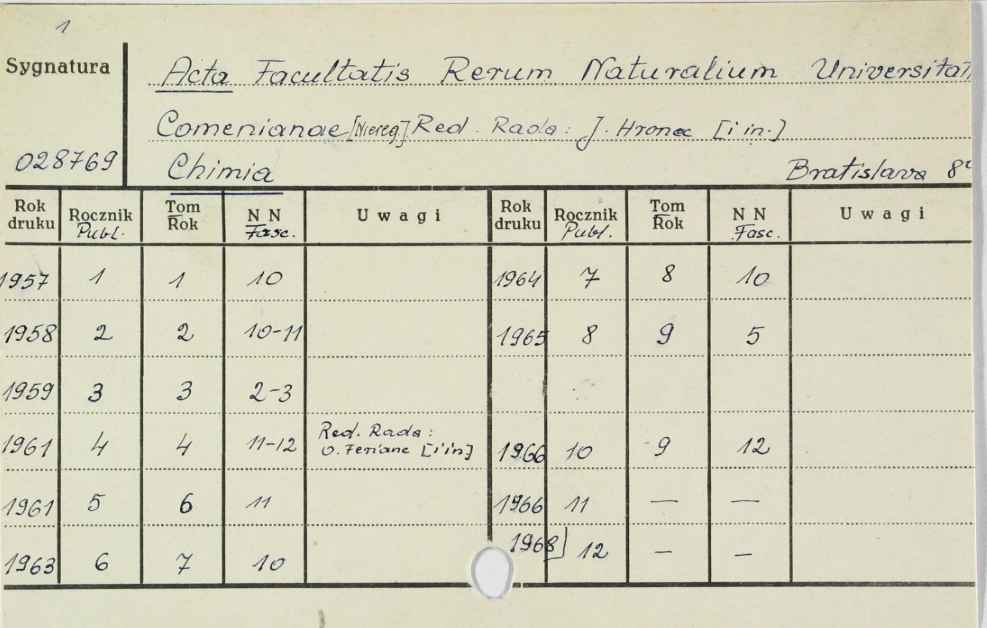 1
Sygnatura
Acta Facultatis Rerum Naturalium Universitati
Comenianae [Niereg.] Red. Rada: J. Hronec [i in.]
028769 Chimia Bratislava 8°
Rok druku Rocznik Publ. Tom Rok NN Fasc. Uwagi Rok druku Rocznik Publ. Tom Rok NN Fasc. Uwagi
1957 1 1 10 1964 7 8 10
1958 2 2 10-11 1965 8 9 5
1959 3 3 2-3
1961 4 4 11-12 Red. Rada: O. Feriane [i in] 1966 10 9 12
1961 5 6 11 1966 11 — —
1963 6 7 10 1968] 12 — —